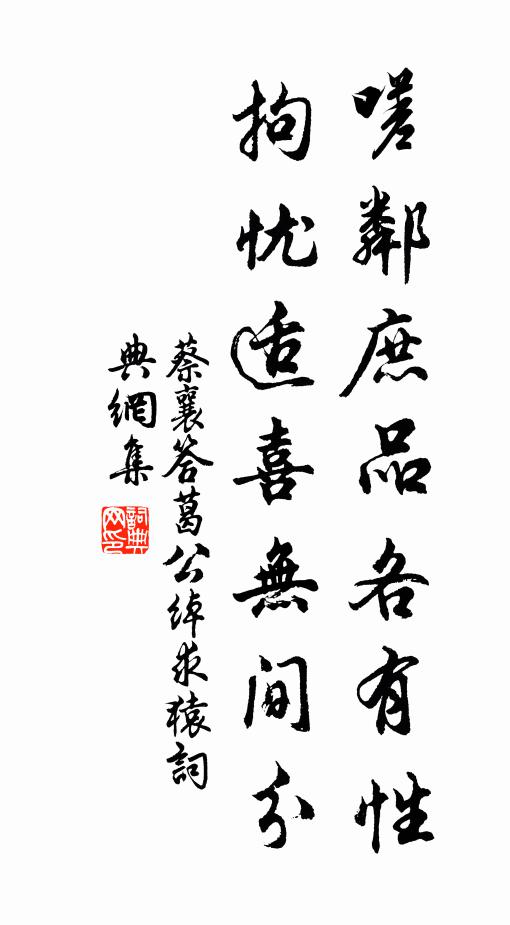 嗟鄰庶品各有性
拘忧适喜無间分
蔡襄答葛公綽求猿詞
典網集
詞典網印